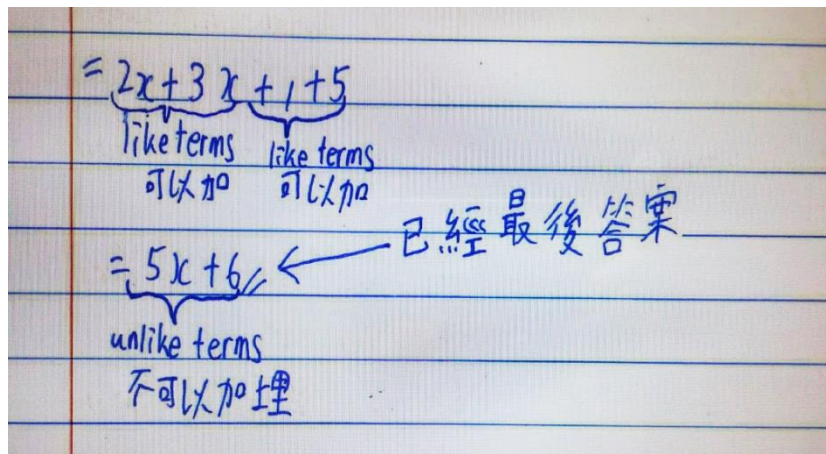 = 2x + 3x + 1 + 5
like terms like terms
可以加 可以加
= 5x + 6 已經最後答案
unlike terms
不可以加埋